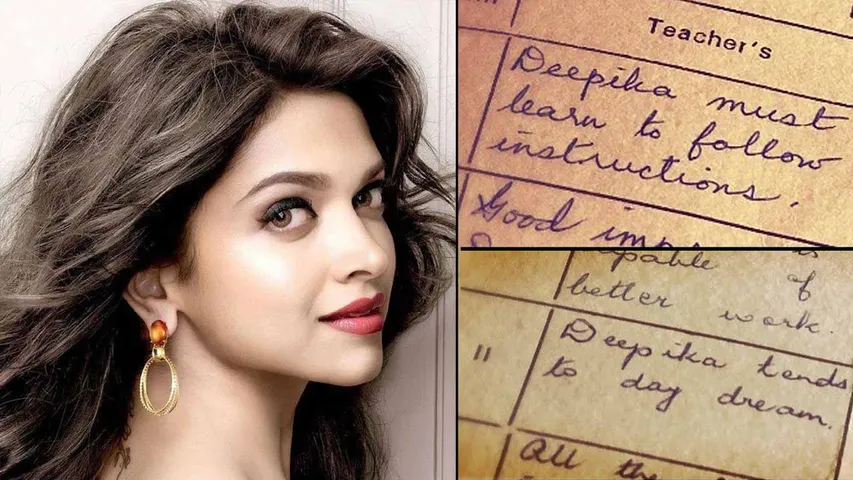 Teacher's
Deepika must
learn to follow
instructions.
Good
capable of
better work.
11
Deepika tends
to day dream.
All the